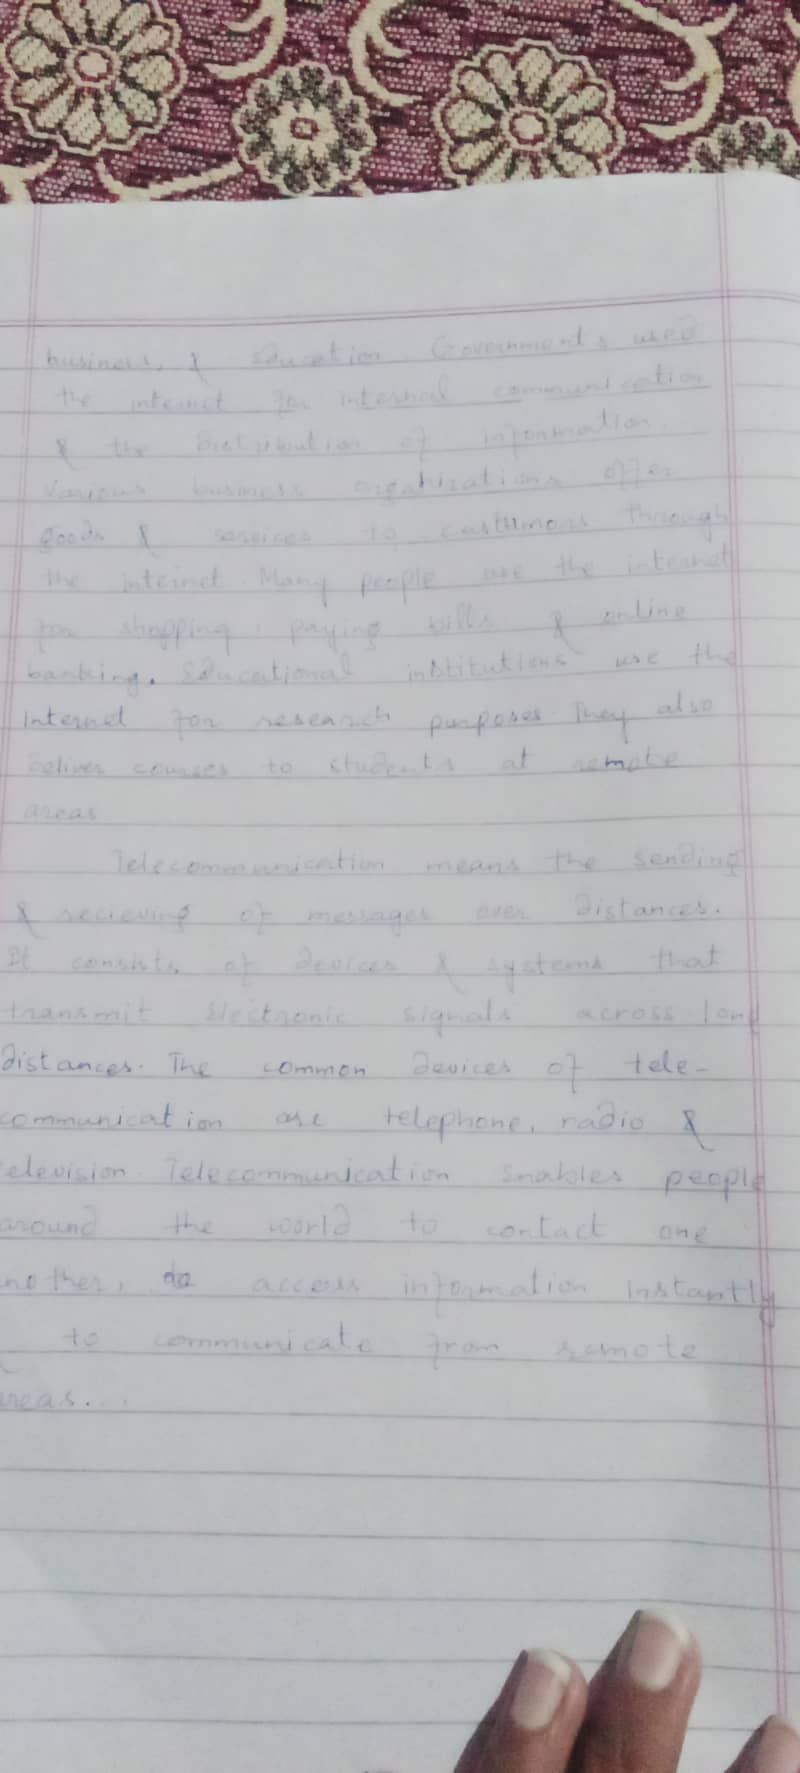 business, & Education. Governments used
the internet for internal communication
& the distribution of information.
Various business organizations offer
goods & services to custumors through
the internet. Many people use the internet
for shopping, paying bills & online
banking. Educational institutions use the
internet for research purposes. They also
deliver courses to students at remote
areas
Telecommunication means the sending
& recieving of messages over distances.
It consists of devices & systems that
transmit electronic signals across long
distances. The common devices of tele-
communication are telephone, radio &
elevision. Telecommunication enables people
around the world to contact one
nother, to access information instantly
to communicate from remote
areas...